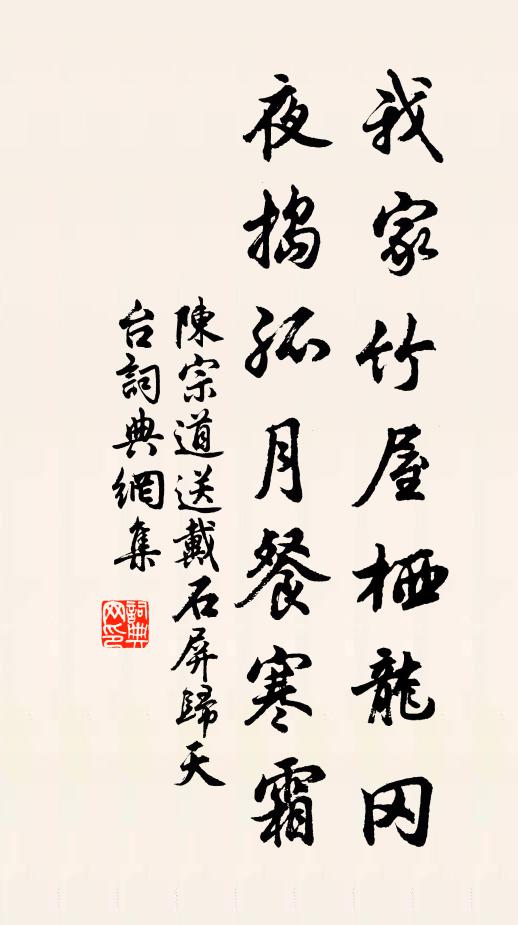 我家竹屋栖龍冈
夜搗孤月餐寒霜
陳宗道送戴石屏歸天
台詞典網集
詞典
网印